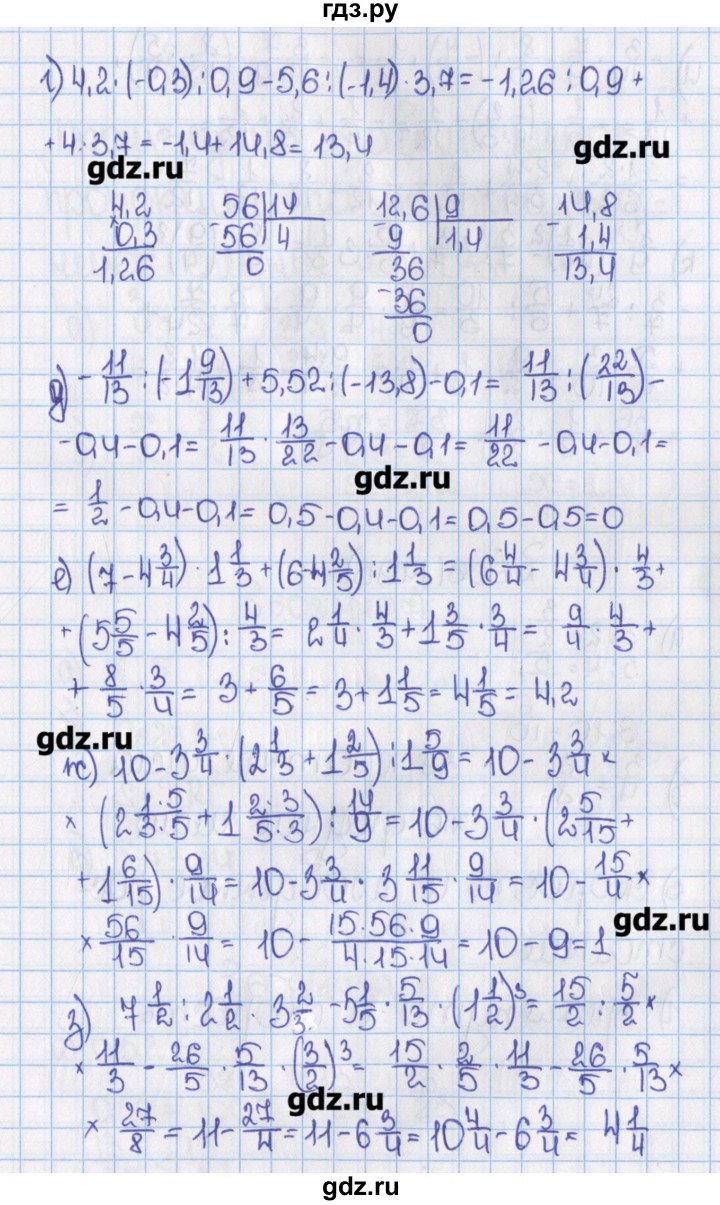 гдз.ру
г) 4,2 · (-0,3) : 0,9 - 5,6 : (-1,4) · 3,7 = -1,26 : 0,9 +
+ 4 · 3,7 = -1,4 + 14,8 = 13,4
gdz.ru
gdz.ru
4,2
0,3
1,26
- 56 | 14
56 | 4
0
- 12,6 | 9
9 | 1,4
36
- 36
0
- 14,8
1,4
13,4
д) - 11/13 : (-1 9/13) + 5,52 : (-13,8) - 0,1 = 11/13 : (22/13) -
- 0,4 - 0,1 = 11/13 · 13/22 - 0,4 - 0,1 = 11/22 - 0,4 - 0,1 =
gdz.ru
= 1/2 - 0,4 - 0,1 = 0,5 - 0,4 - 0,1 = 0,5 - 0,5 = 0
е) (7 - 4 3/4) · 1 1/3 + (6 - 4 2/5) : 1 1/3 = (6 4/4 - 4 3/4) · 4/3 +
+ (5 5/5 - 4 2/5) : 4/3 = 2 1/4 · 4/3 + 1 3/5 · 3/4 = 9/4 · 4/3 +
+ 8/5 · 3/4 = 3 + 6/5 = 3 + 1 1/5 = 4 1/5 = 4,2
gdz.ru
ж) 10 - 3 3/4 · (2 1/3 + 1 2/5) : 1 5/9 = 10 - 3 3/4 ×
× (2 1·5/3·5 + 1 2·3/5·3) : 14/9 = 10 - 3 3/4 · (2 5/15 +
+ 1 6/15) · 9/14 = 10 - 3 3/4 · 3 11/15 · 9/14 = 10 - 15/4 ×
gdz.ru
× 56/15 · 9/14 = 10 - 15·56·9/4·15·14 = 10 - 9 = 1
з) 7 1/2 : 2 1/2 · 3 2/3 - 5 1/5 · 5/13 · (1 1/2)³ = 15/2 : 5/2 ×
× 11/3 - 26/5 · 5/13 · (3/2)³ = 15/2 · 2/5 · 11/3 - 26/5 · 5/13 ×
gdz.ru
× 27/8 = 11 - 27/4 = 11 - 6 3/4 = 10 4/4 - 6 3/4 = 4 1/4
gdz.ru